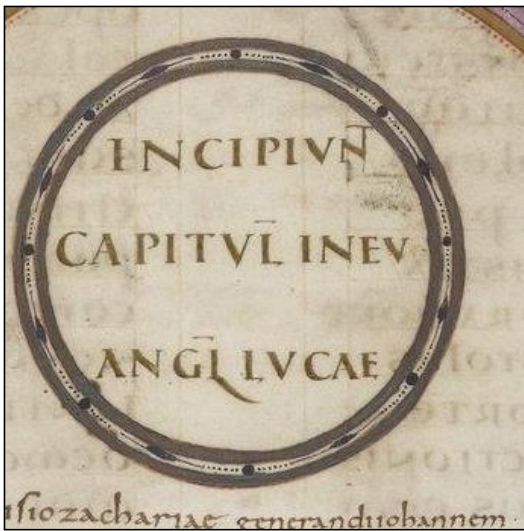 INCIPIUNT
CAPITVL̅ IN EV
ANGL̅ LVCAE
isio zachariae generandi iohannem